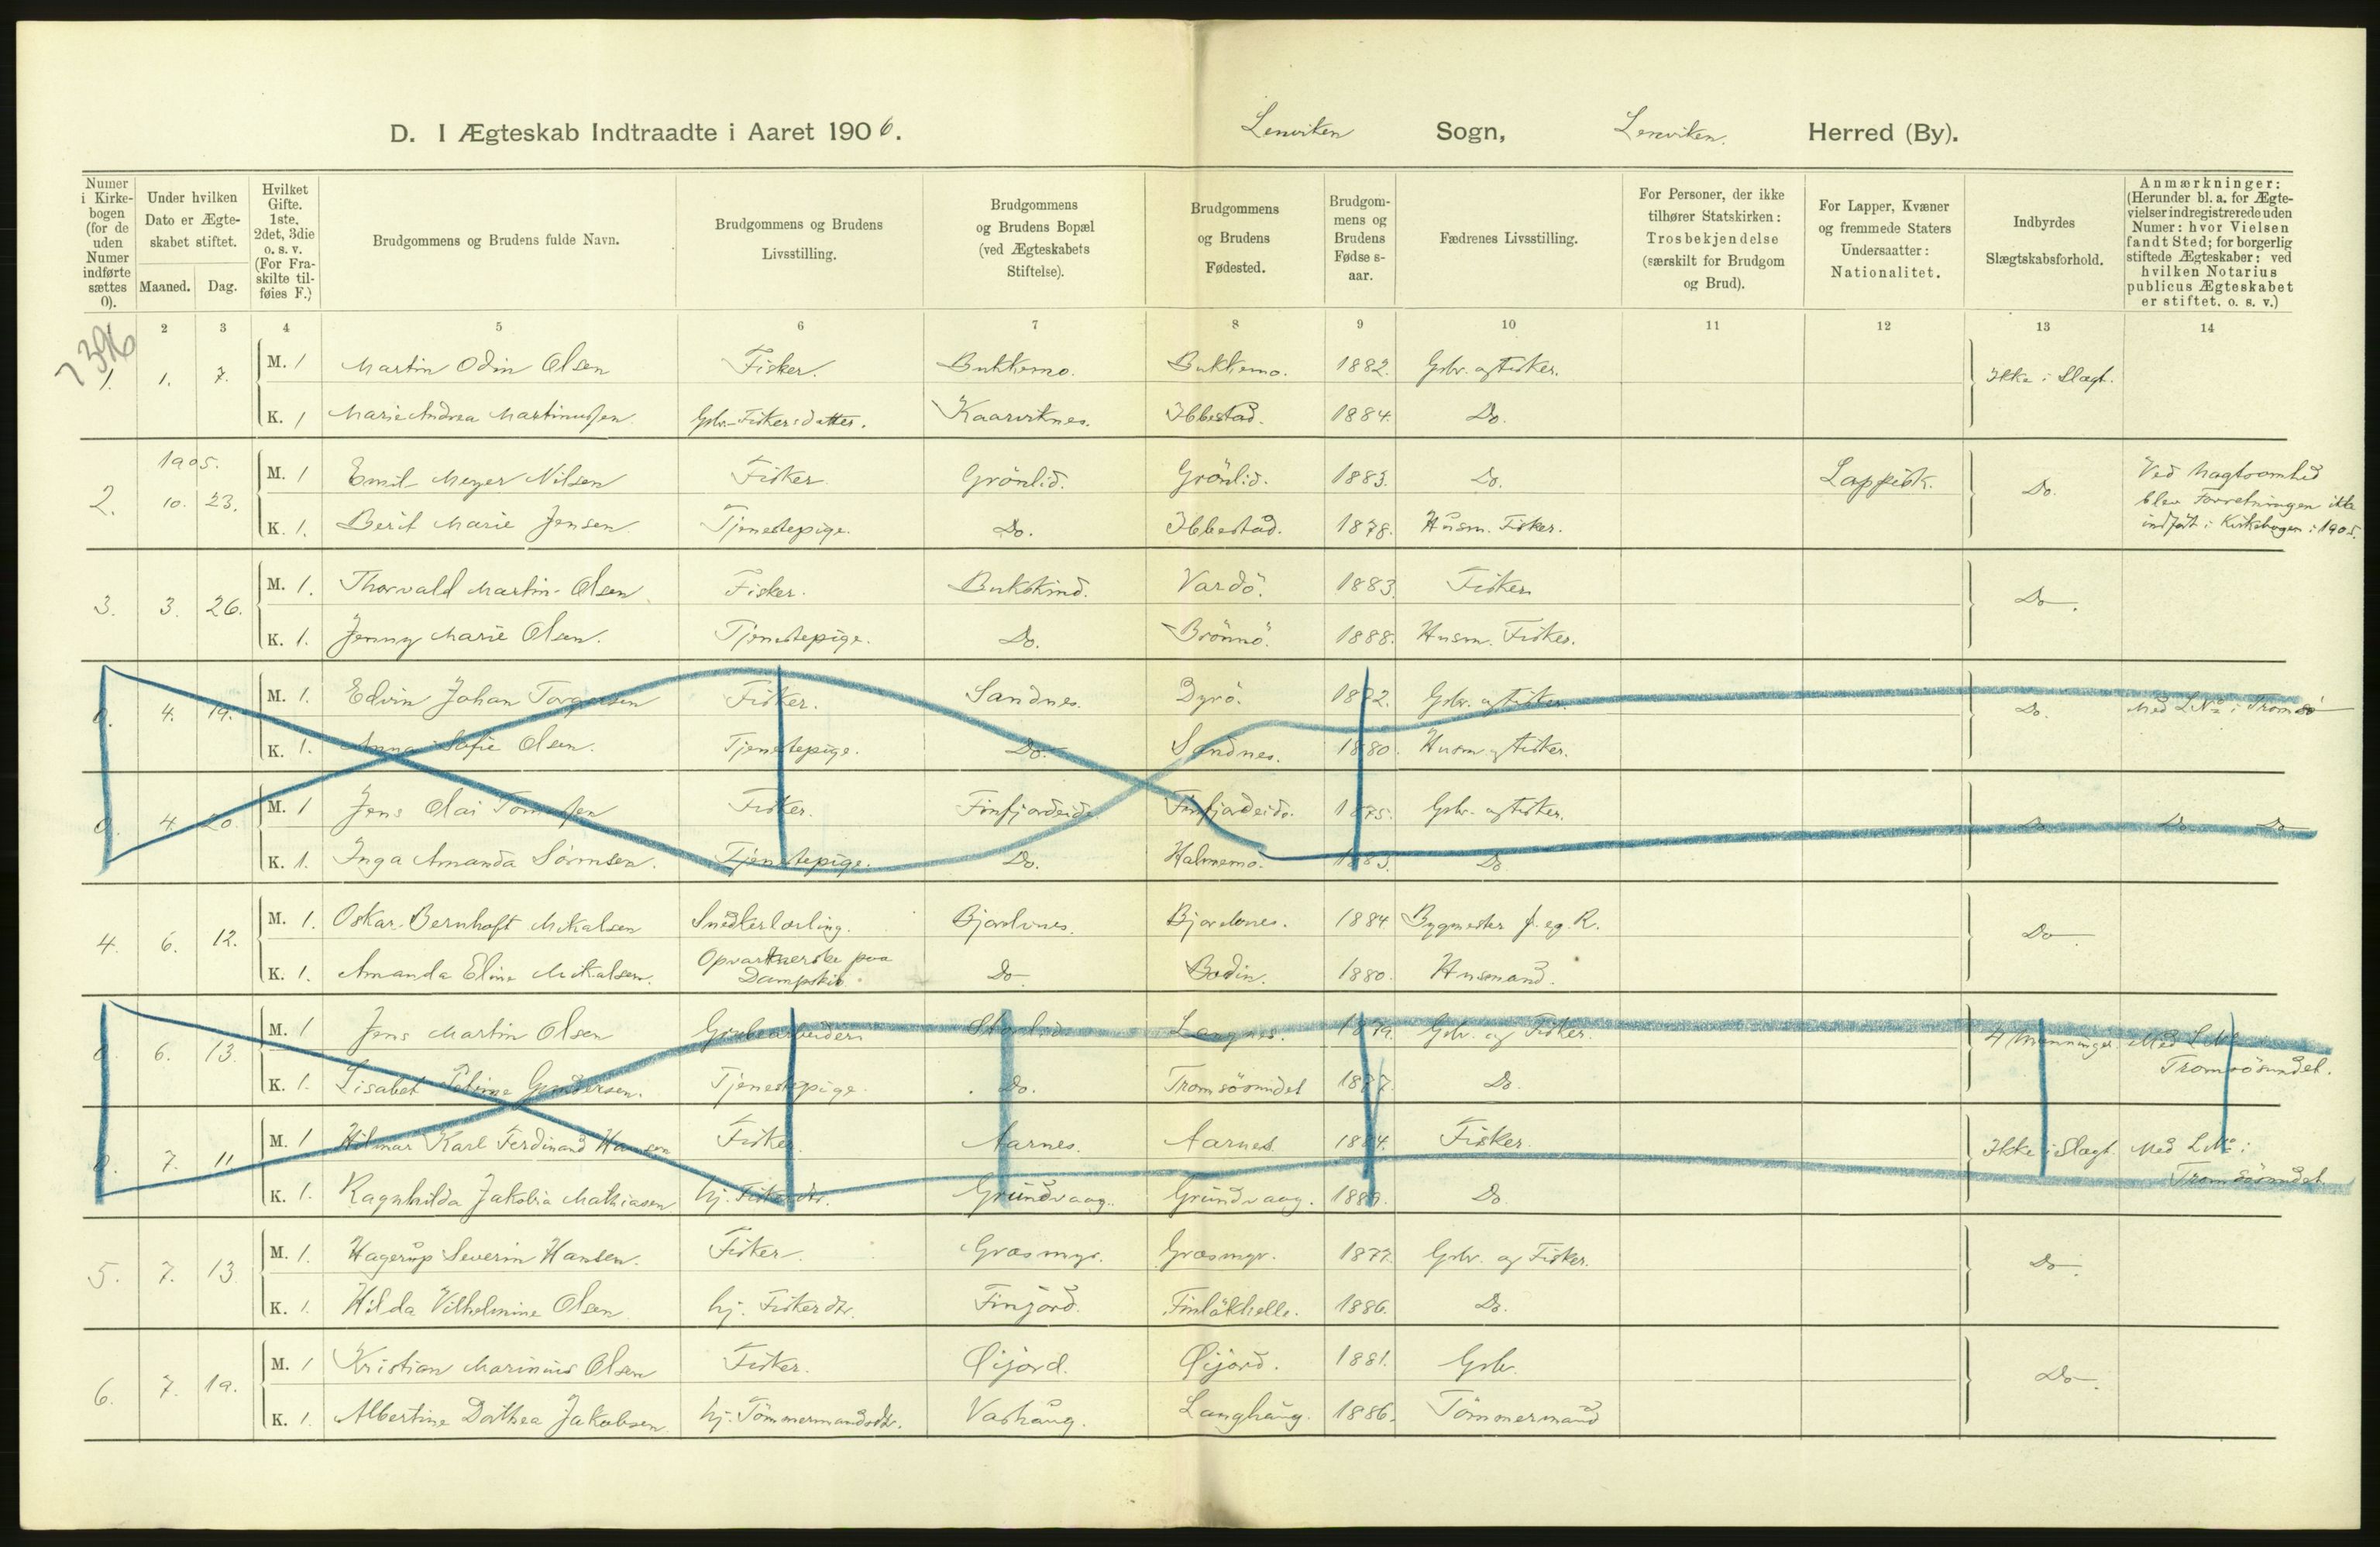 D. I Ægteskab Indtraadte i Aaret 1906. Lenviken Sogn, Lenviken. Herred (By).
Numer i Kirkebogen (for de uden Numer indførte sættes 0). Under hvilken Dato er Ægteskabet stiftet. Maaned. Dag. Hvilket Gifte. 1ste. 2det, 3die o. s. v. (For Fraskilte tilføies F.) Brudgommens og Brudens fulde Navn. Brudgommens og Brudens Livsstilling. Brudgommens og Brudens Bopæl (ved Ægteskabets Stiftelse). Brudgommens og Brudens Fødested. Brudgommens og Brudens Fødselsaar. Fædrenes Livsstilling. For Personer, der ikke tilhører Statskirken: Trosbekjendelse (særskilt for Brudgom og Brud). For Lapper, Kvæner og fremmede Staters Undersaatter: Nationalitet. Indbyrdes Slægtskabsforhold. Anmærkninger: (Herunder bl. a. for Ægtevielser indregistrerede uden Numer: hvor Vielsen fandt Sted; for borgerlig stiftede Ægteskaber: ved hvilken Notarius publicus Ægteskabet er stiftet. o. s. v.)
2 3 4 5 6 7 8 9 10 11 12 13 14
7396
1. 1. 7. M. 1 Martin Odin Olsen Fisker. Bukkemo. Bukkemo. 1882. Gbr. og Fisker. Ikke i Slægt.
K. 1 Marie Andrea Martinussen Gbr.-Fiskersdatter. Kaarviknes. Ibbestad. 1884. Do.
1905.
2. 10. 23. M. 1 Emil Meyer Nilsen Fisker. Grönlid. Grönlid. 1883. Do. Lappisk. Do. Ved Uagtsomhed blev Forretningen ikke indført i Kirkebogen i 1905.
K. 1. Berit Marie Jensen Tjenestepige. Do. Ibbestad. 1878. Husm. Fisker.
3. 3. 26. M. 1. Thorvald Martin Olsen Fisker. Bukskind. Vardö. 1883. Fisker Do.
K. 1. Jenny Marie Olsen. Tjenestepige. Do. Brönnö. 1888. Husm. Fisker.
0. 4. 19. M. 1. Edvin Johan Torgersen Fisker. Sandnes. Dyrö. 1882. Gbr. og Fisker. Do. Med L.No i Tromsö
K. 1. Anna Sofie Olsen. Tjenestepige. Do. Sandnes. 1880. Husm og Fisker.
0. 4. 20. M. 1 Jens Olai Fisker. Finfjordeid. Finfjordeid. 1875. Gbr. og Fisker. Do Do Do
K. 1. Inga Amanda Sörensen. Tjenestepige. Do. Halmemo. 1883. Do
4. 6. 12. M. 1. Oskar Bernhoft Mikalsen Snedkerlærling. Bjorelvnes. Bjorelvnes. 1884 Bygmester f. eg. R. Do
K. 1. Amanda Eline Mikalsen. Opvarterske paa Dampskib. Do Bodin. 1880. Husmand.
0. 6. 13. M. 1 Jens Martin Olsen Grubearbeider Langnes. 1879. Gbr. og Fisker. 4 Menninger Med L.No Tromsösundet.
K. 1. Lisabet Petrine Gundersen. Tjenestepige. Do. Tromsösundet 1877. Do.
0. 7. 11 M. 1 Hilmar Karl Ferdinand Hansen Fisker Aarnes. Aarnes. 1884. Fisker. Ikke i Slægt. Med L.No i Tromsösundet
K. 1. Ragnhilda Jakobia Mathiasen hj. Fiskerdtr. Grundvaag. Grundvaag. 1889. Do.
5. 7. 13. M. 1. Hagerup Severin Hansen. Fisker. Græsmyr. Græsmyr. 1877. Gbr. og Fisker. Do.
K. 1. Hilda Vilhelmine Olsen. hj. Fiskerdtr. Finjord. 1886. Do.
6. 7. 19. M. 1 Kristian Marinius Olsen Fisker. Øijord. Øijord. 1881. Gbr. Do.
K. 1. Albertine Dorthea Jakobsen. hj. Tömmermandsdtr. Vashaug. Langhaug. 1886. Tömmermand